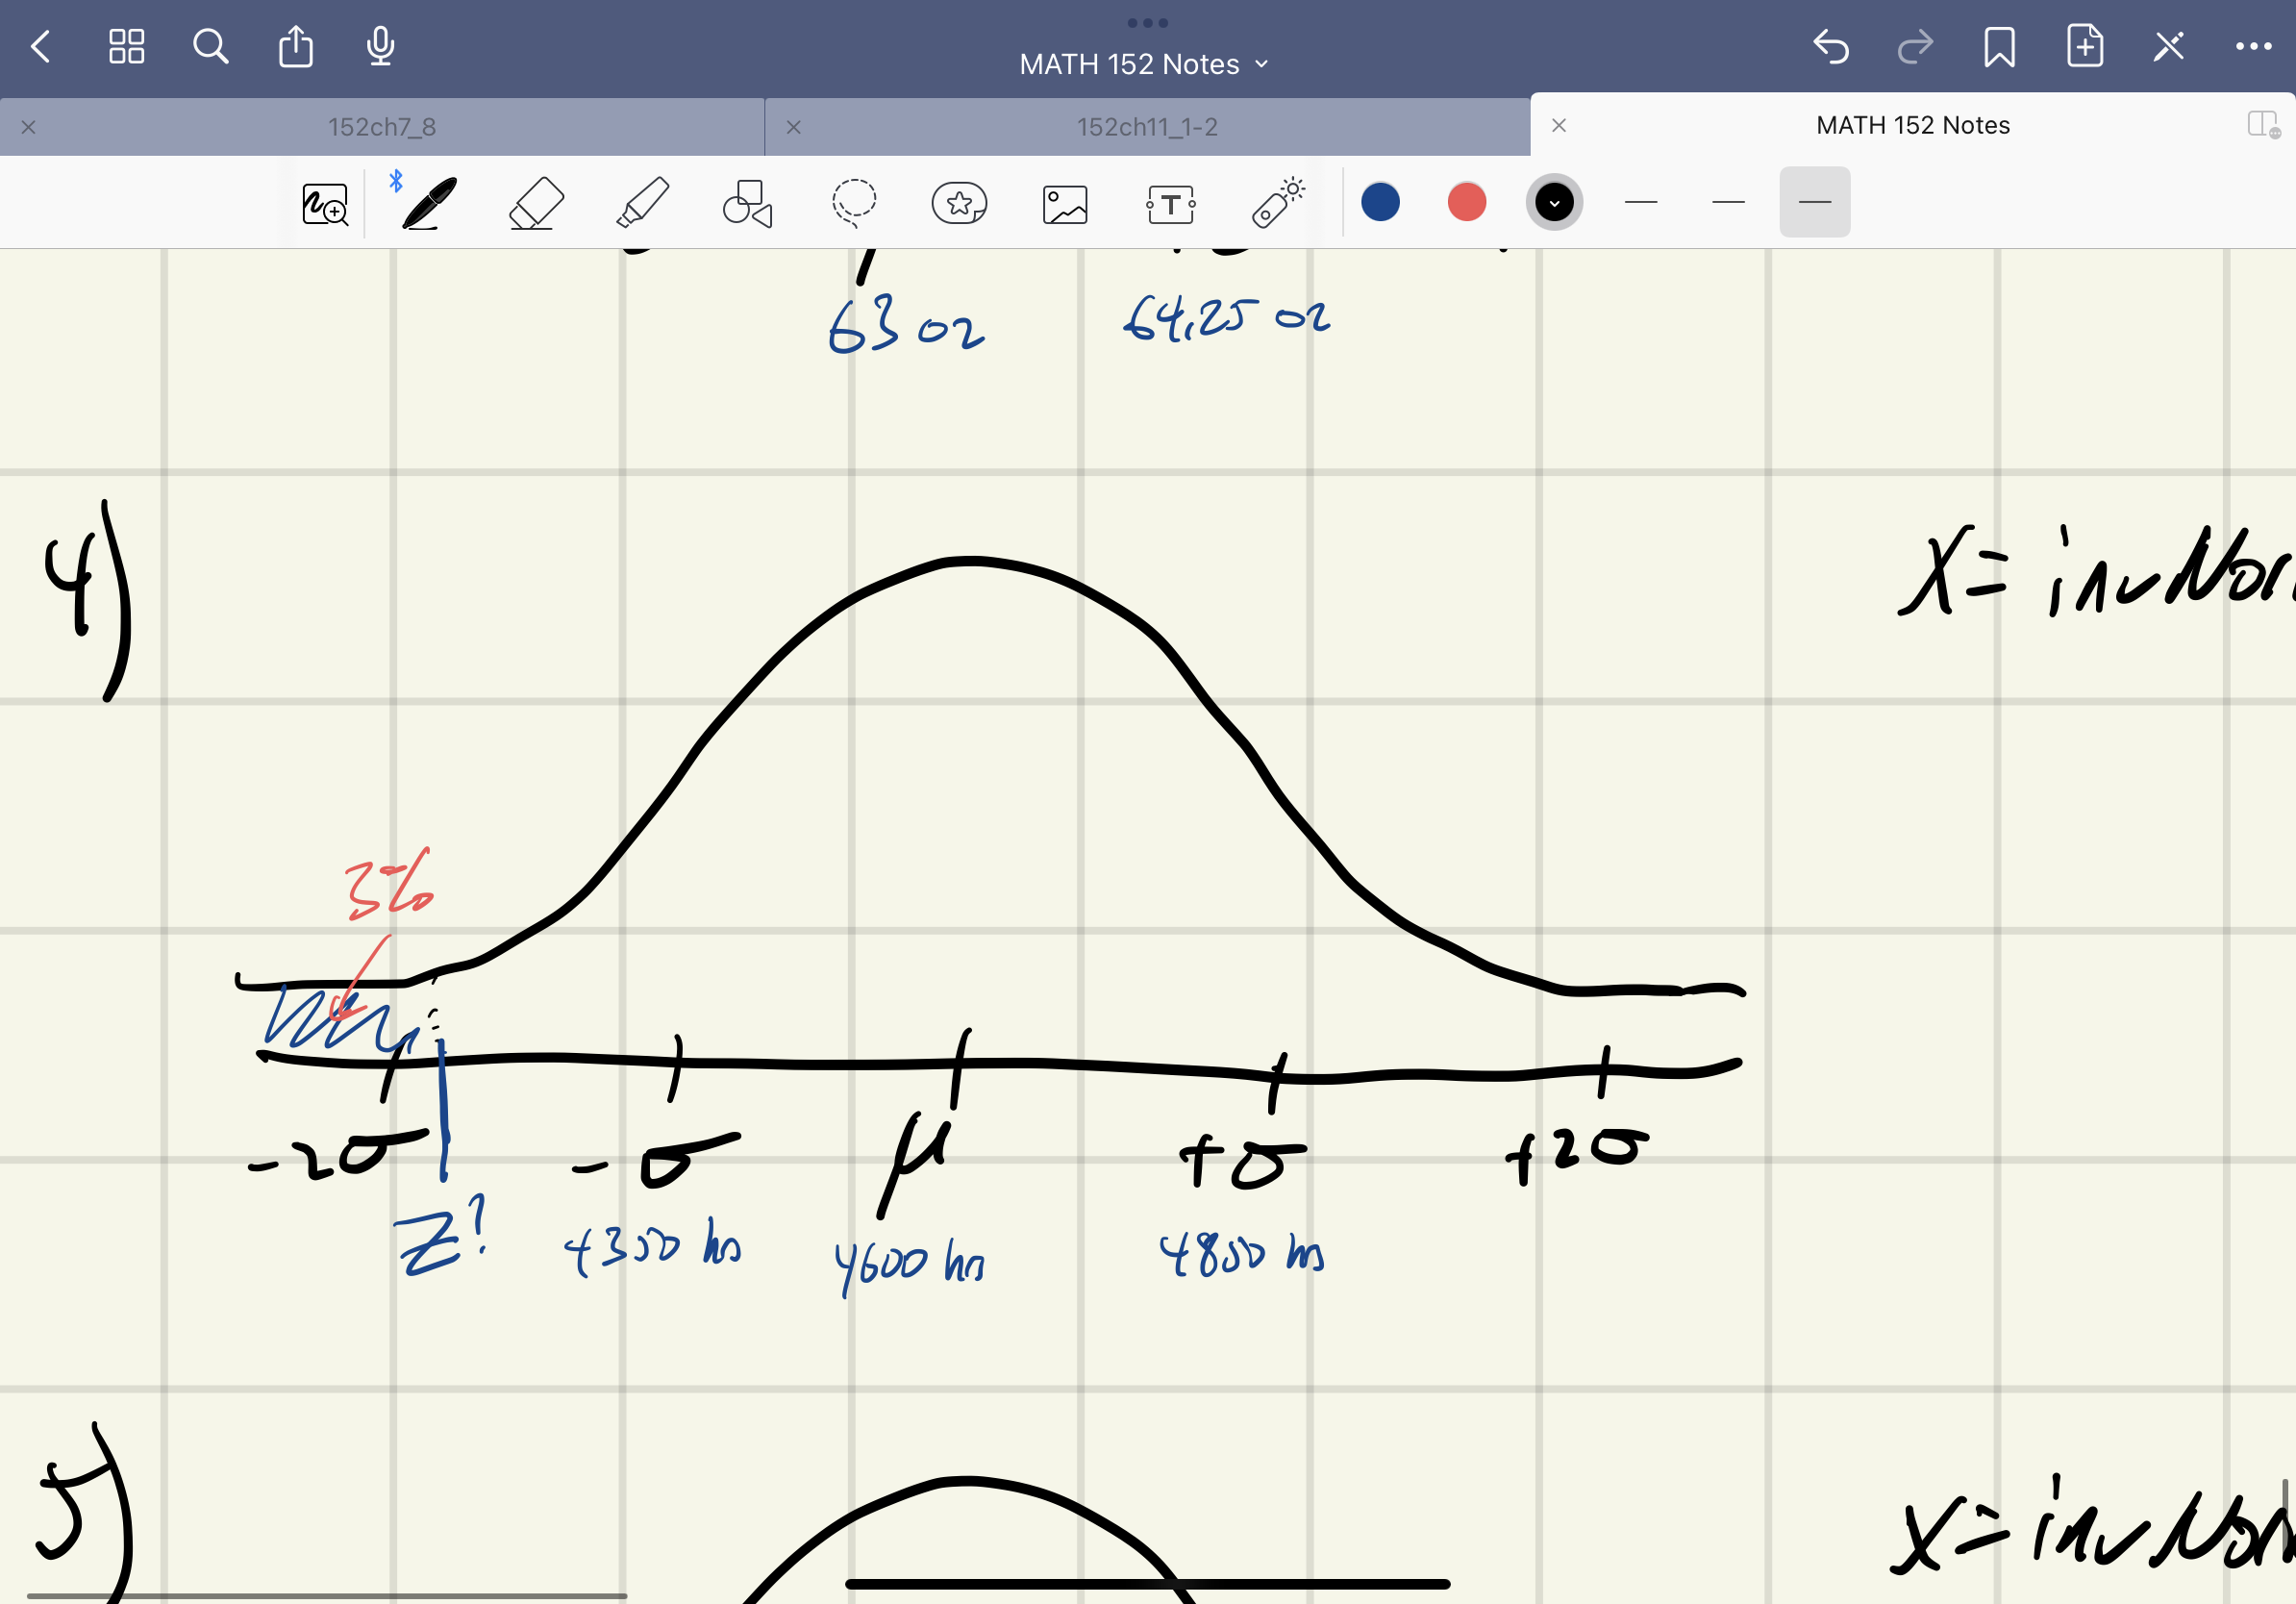 MATH 152 Notes
152ch7_8
152ch11_1-2
MATH 152 Notes
T
63 oz
64.25 oz
4)
X = invNor
3%
-2σ
-σ
μ
+σ
+2σ
z?
4350 hrs
4600 hrs
4850 hrs
5)
X = invNor